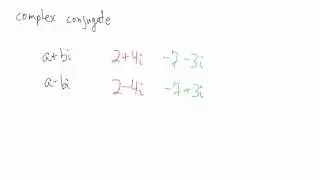 complex conjugate
a+bi 2+4i -7-3i
a-bi 2-4i -7+3i